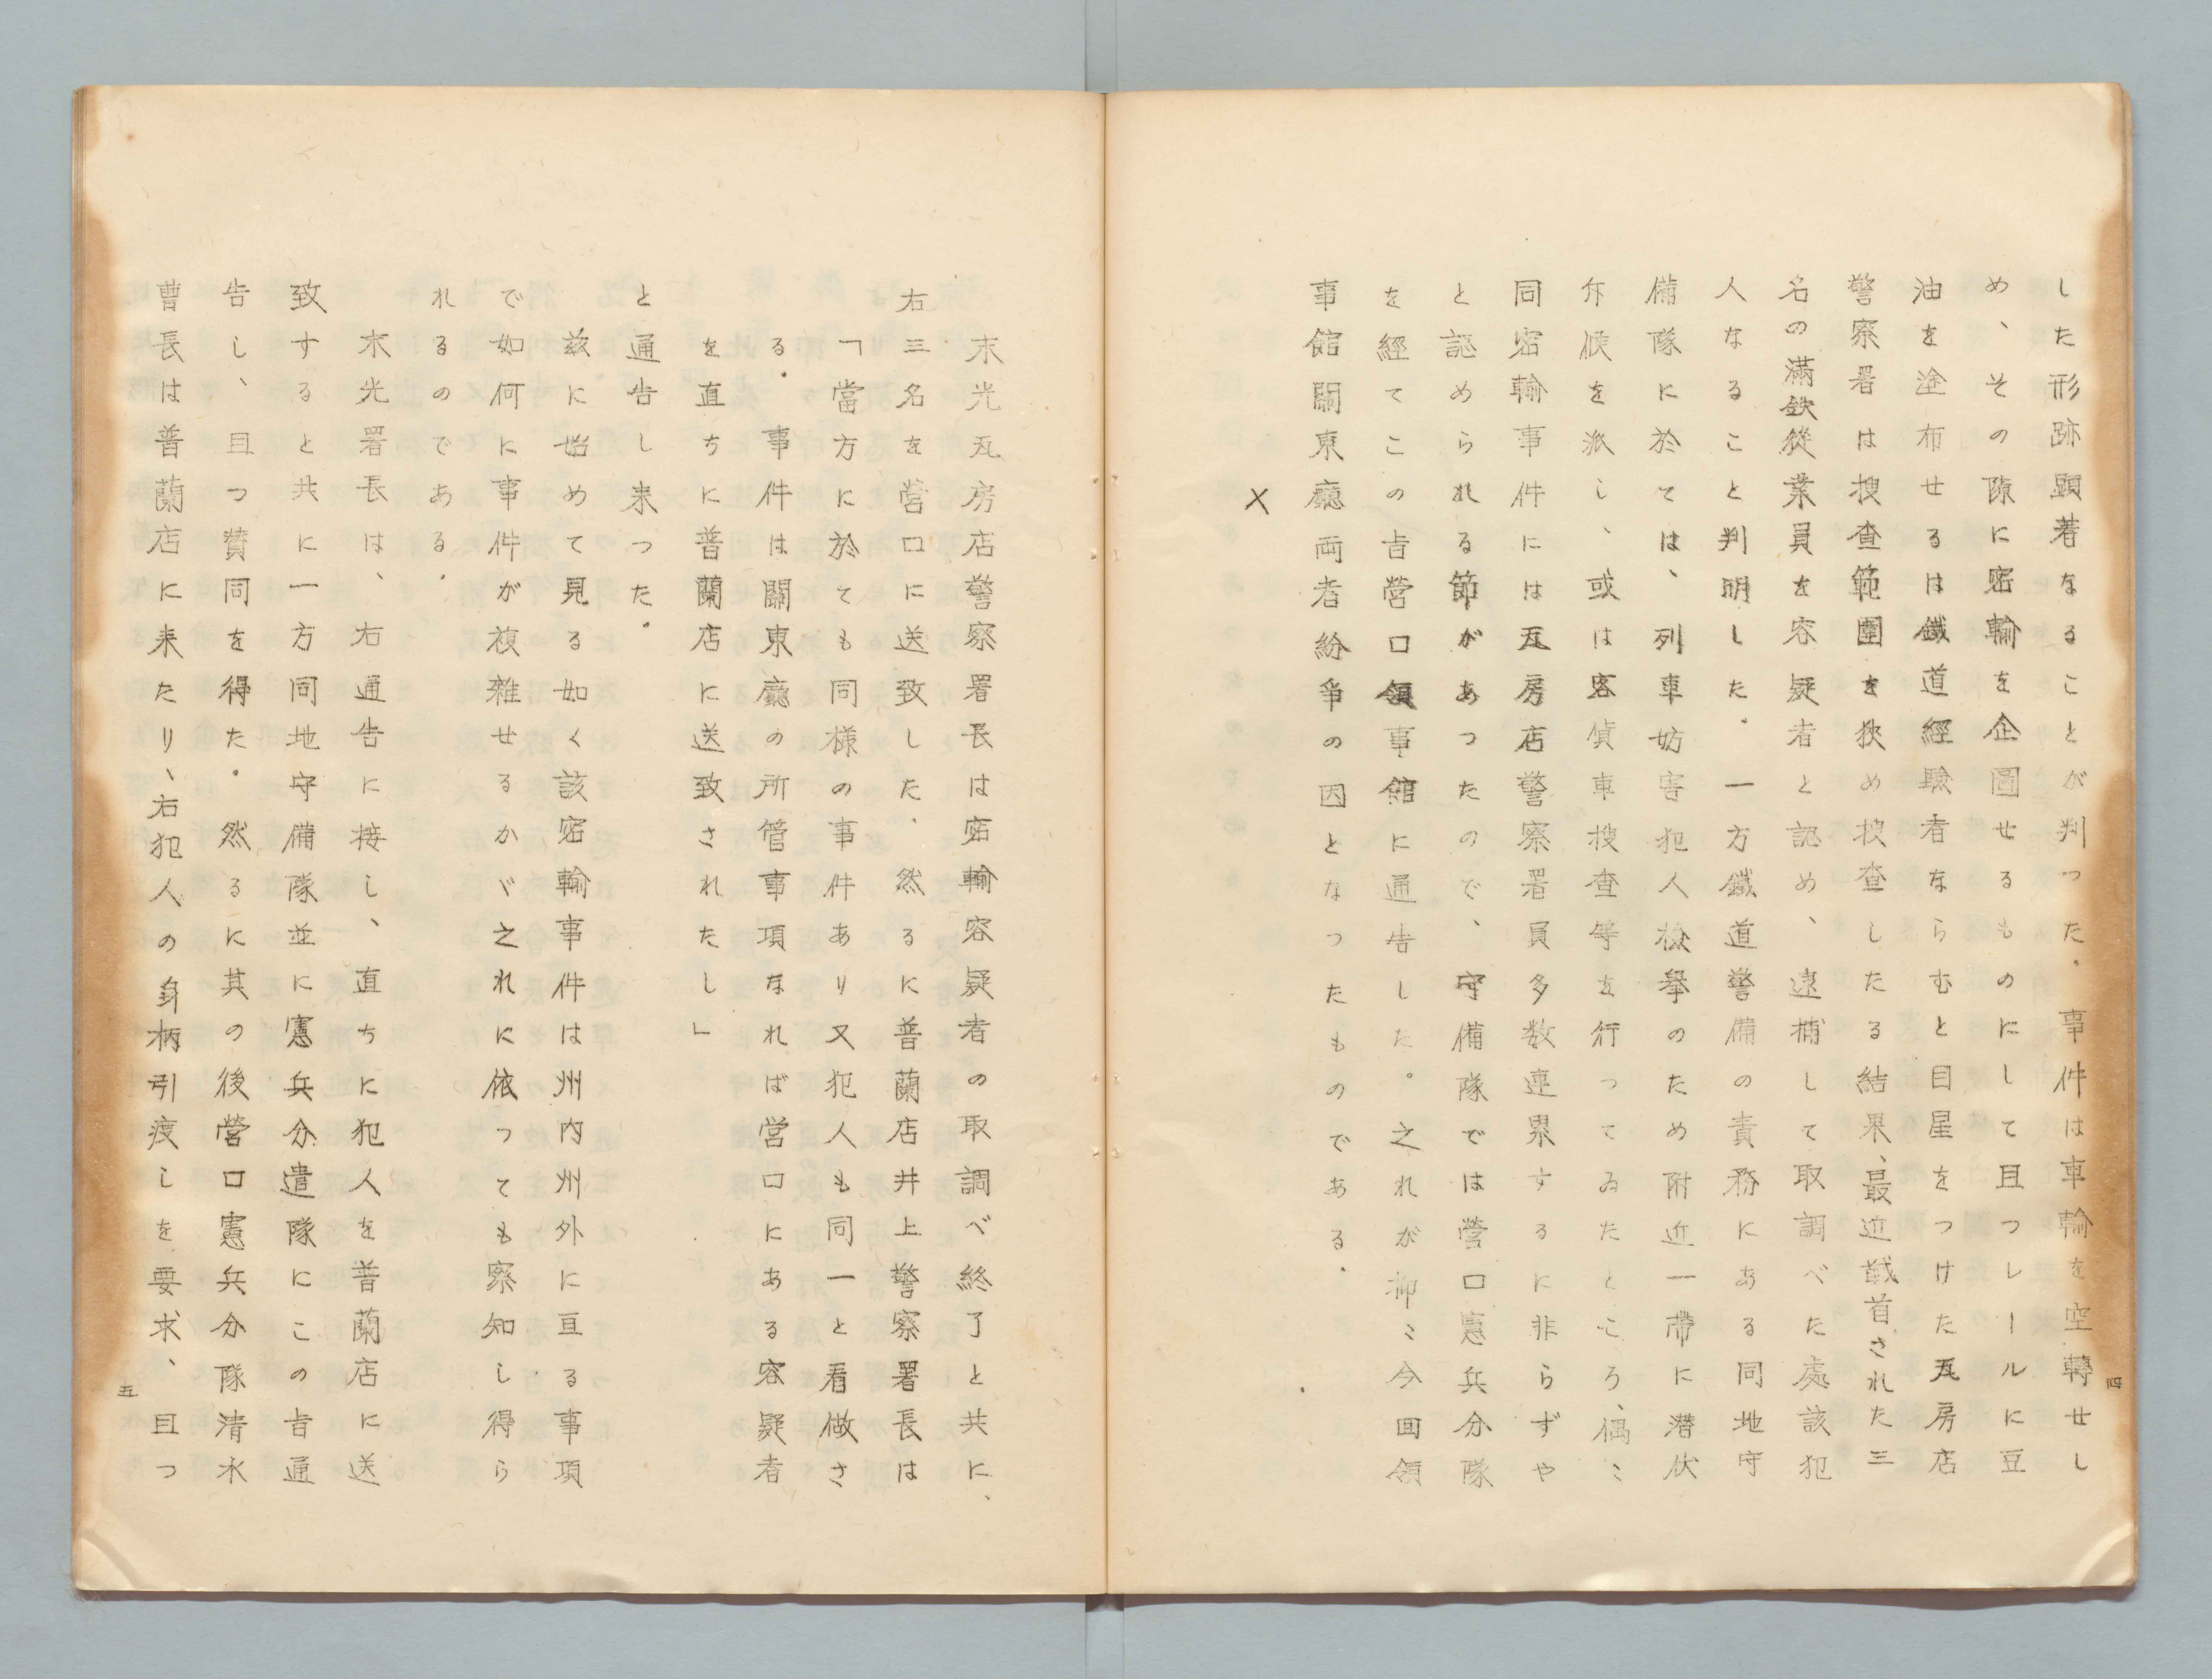 した形跡顕著なることが判つた。事件は車輪を空轉せし
め、その隙に密輸を企圖せるものにして且つレールに豆
油を塗布せるは鐵道經驗者ならむと目星をつけた瓦房店
警察署は捜査範圍を狭め捜査したる結果、最近馘首された三
名の滿鉄從業員を容疑者と認め、逮捕して取調べた處該犯
人なること判明した。一方鐵道警備の責務にある同地守
備隊に於ては、列車妨害犯人檢擧のため附近一帶に潜伏
斥候を派し、或は客貨車捜査等を行つてゐたところ、偶〻
同密輸事件には瓦房店警察署員多数連累するに非らずや
と認められる節があつたので、守備隊では營口憲兵分隊
を經てこの旨営口領事館に通告した。之れが抑〻今囬領
事館關東廳両者紛爭の因となつたものである。
×
四
末光瓦房店警察署長は密輸容疑者の取調べ終了と共に、
右三名を営口に送致した、然るに普蘭店井上警察署長は
「當方に於ても同様の事件あり又犯人も同一と看做さ
る。事件は關東廳の所管事項なれば営口にある容疑者
を直ちに普蘭店に送致されたし」
と通告し来つた。
玆に始めて見る如く該密輸事件は州内州外に亘る事項
で如何に事件が複雜せるかゞ之れに依つても察知し得ら
れるのである。
末光署長は、右通告に接し、直ちに犯人を普蘭店に送
致すると共に一方同地守備隊並に憲兵分遣隊にこの旨通
告し、且つ賛同を得た。然るに其の後營口憲兵分隊清水
曹長は普蘭店に来たり、右犯人の身柄引渡しを要求、且つ
五